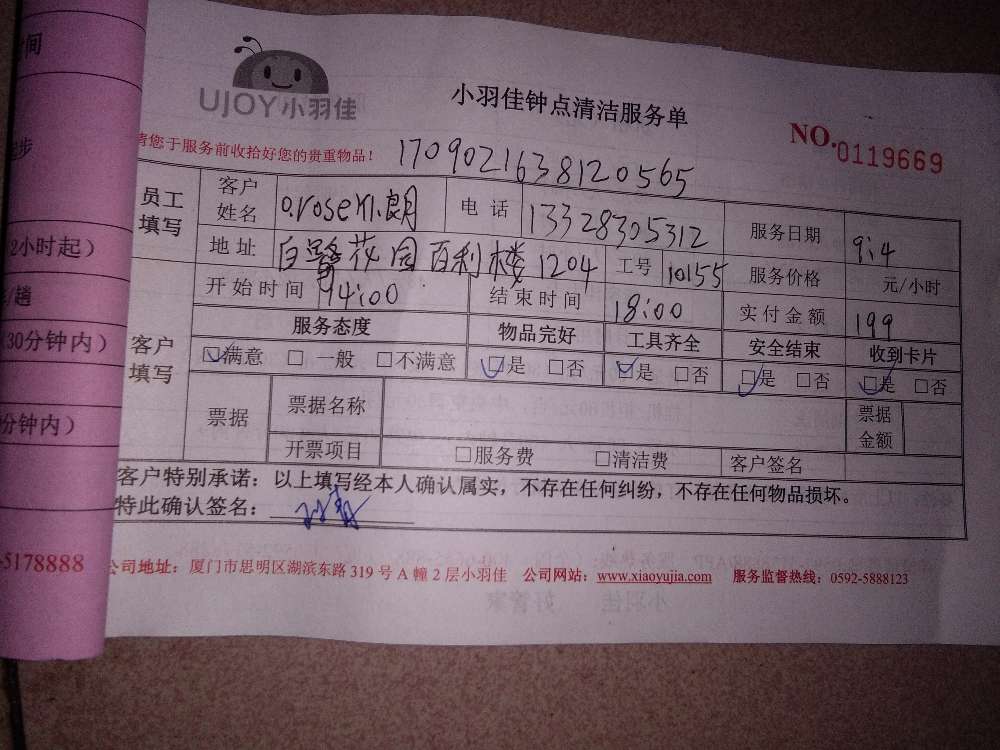 UJOY小羽佳
小羽佳钟点清洁服务单
NO.0119669
请您于服务前收拾好您的贵重物品！
1709021638120565
员工填写
客户姓名
电话
13328305312
服务日期
9:4
地址
白鹭花园百利楼1204
工号
10155
服务价格
元/小时
开始时间
14:00
结束时间
18:00
实付金额
199
客户填写
服务态度
物品完好
工具齐全
安全结束
收到卡片
☑满意 □一般 □不满意
☑是 □否
☑是 □否
☑是 □否
☑是 □否
票据
票据名称
票据金额
开票项目
□服务费
□清洁费
客户签名
客户特别承诺：以上填写经本人确认属实，不存在任何纠纷，不存在任何物品损坏。
特此确认签名：
公司地址：厦门市思明区湖滨东路319号A幢2层小羽佳 公司网站：www.xiaoyujia.com 服务监督热线：0592-5888123
间
步
2小时起）
/趟
（30分钟内）
分钟内）
-5178888